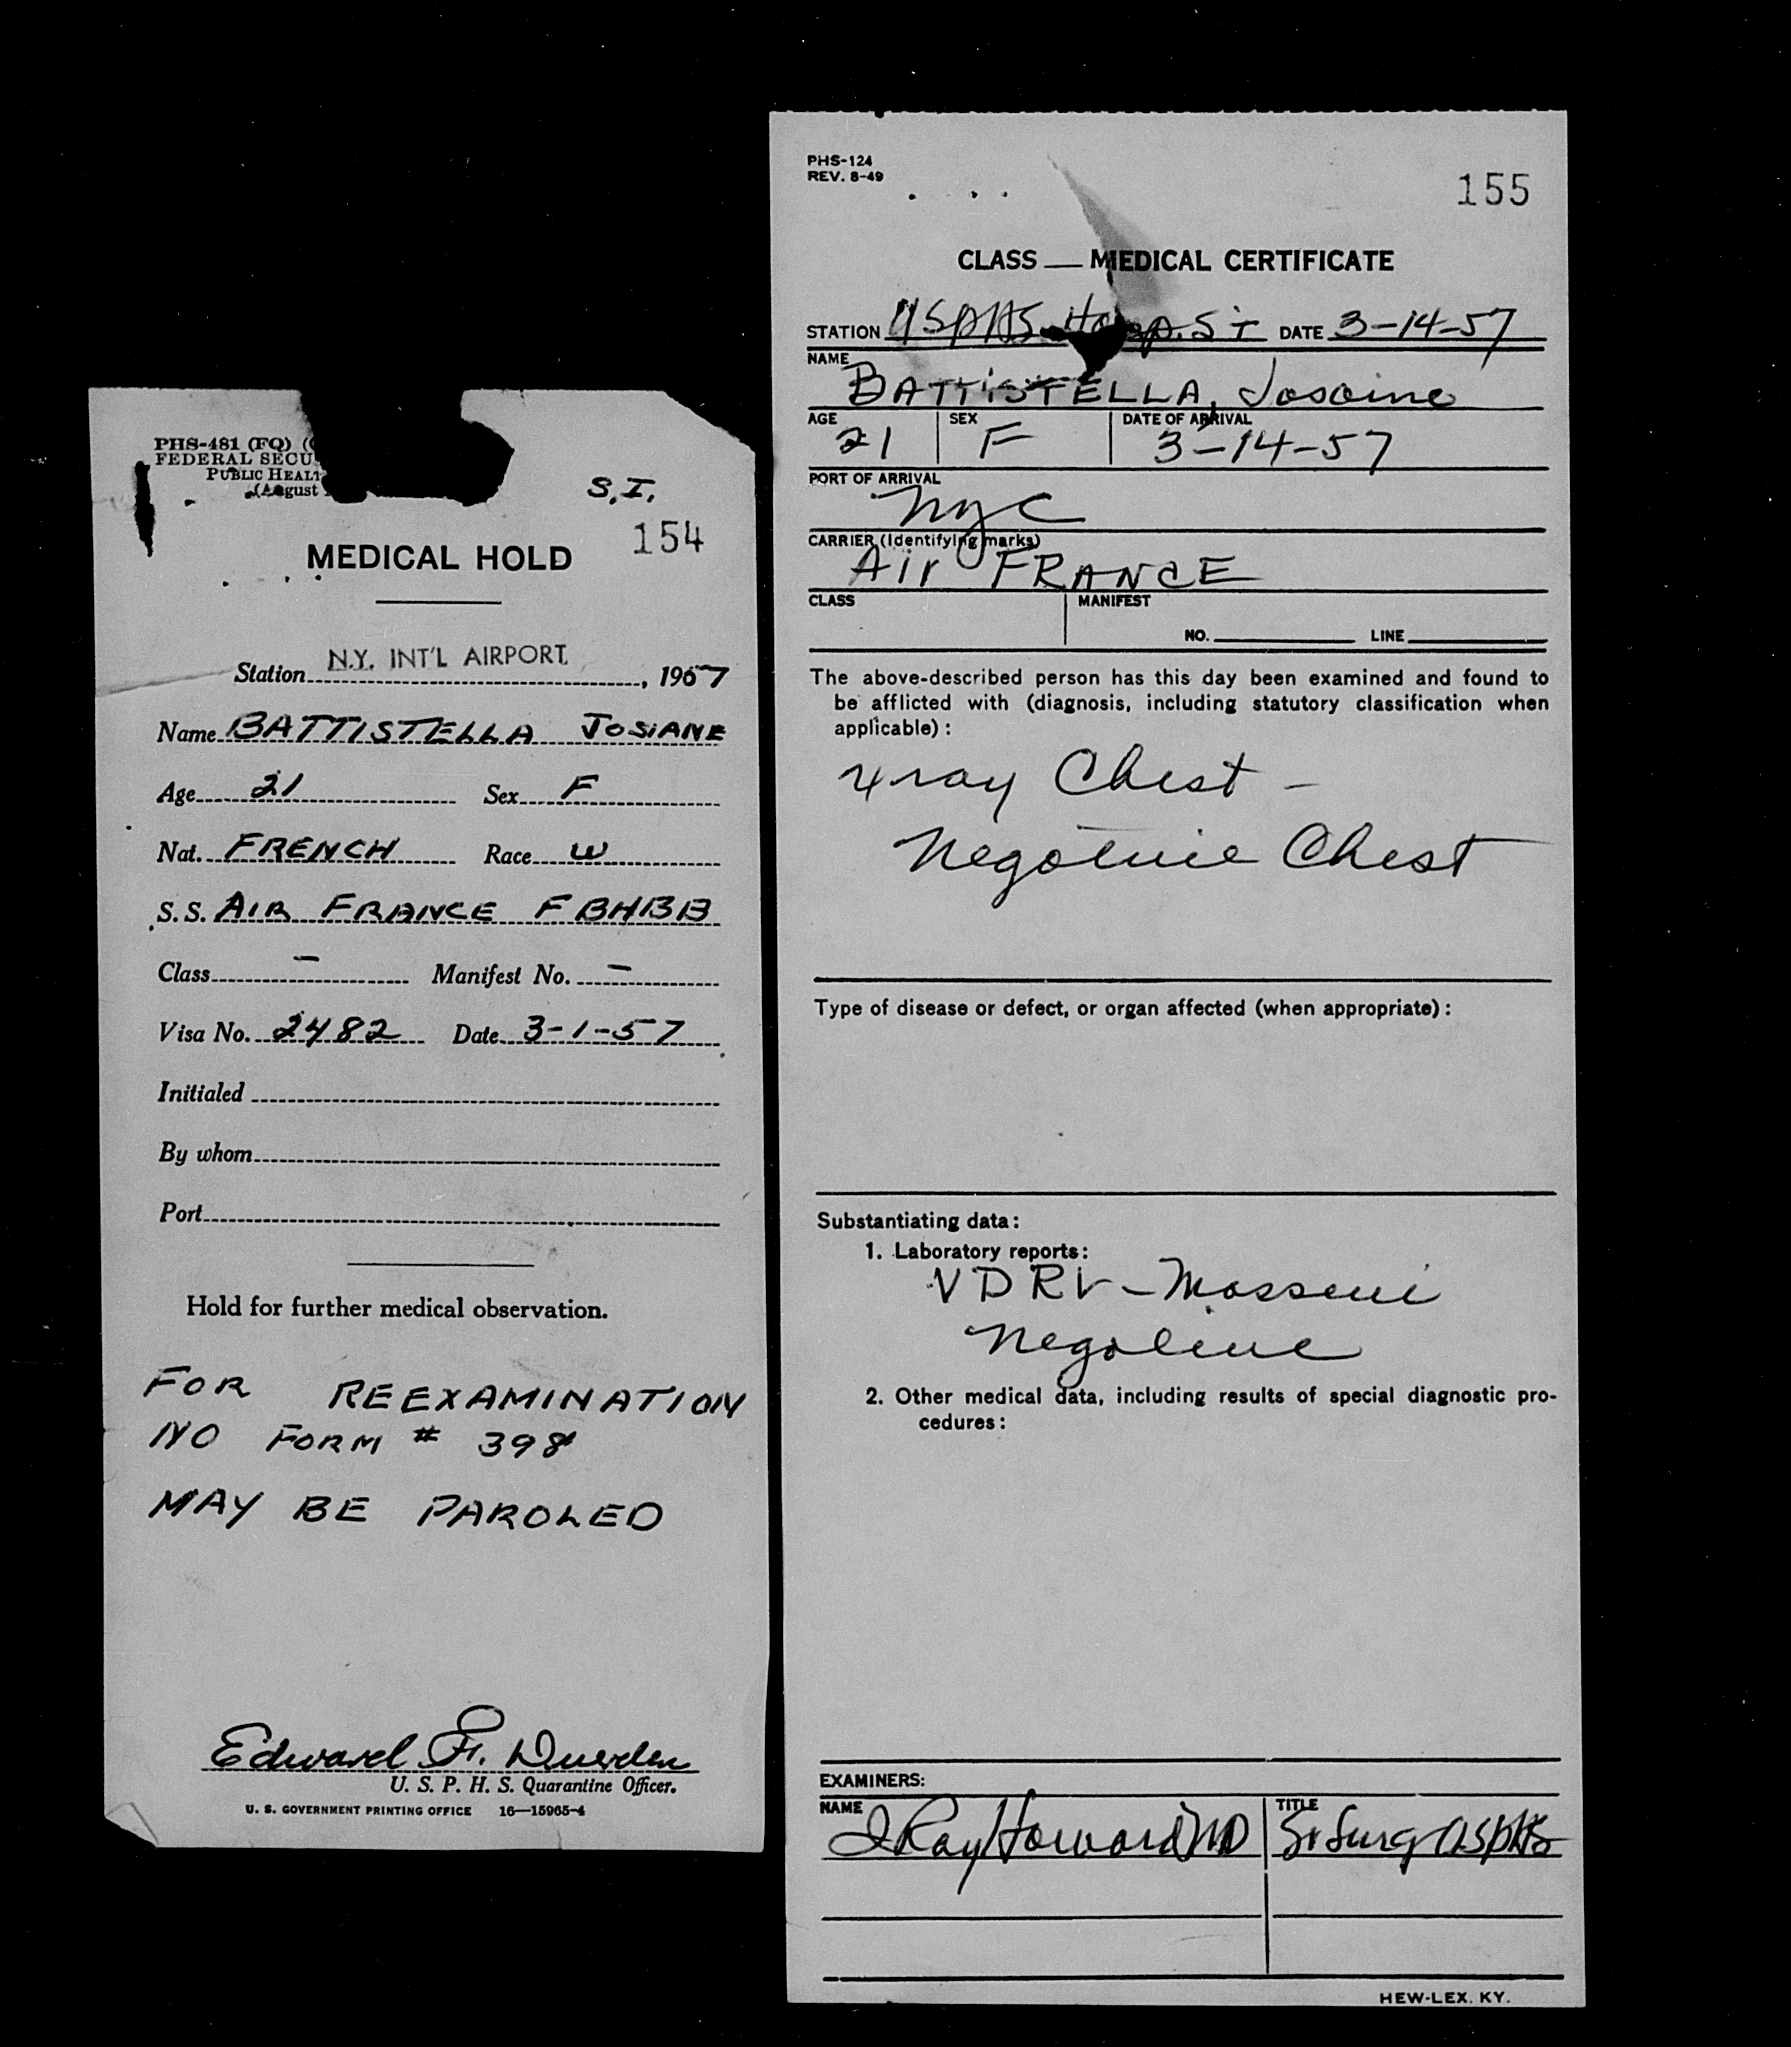 PHS-481 (FQ)
FEDERAL SECU
PUBLIC HEALT
(August
S.I.
154
MEDICAL HOLD
Station N.Y. INT'L AIRPORT, 1957
Name BATTISTELLA JOSIANE
Age 21 Sex F
Nat. FRENCH Race W
S.S. AIR FRANCE F BHBB
Class - Manifest No. -
Visa No. 2482 Date 3-1-57
Initialed
By whom
Port
Hold for further medical observation.
FOR REEXAMINATION
NO FORM # 398
MAY BE PAROLED
Edward F.
U. S. P. H. S. Quarantine Officer.
U. S. GOVERNMENT PRINTING OFFICE 16—15965-4
PHS-124
REV. 8-49
155
CLASS MEDICAL CERTIFICATE
STATION USPHS Hosp. S I DATE 3-14-57
NAME
BATTISTELLA, Josaine
AGE SEX DATE OF ARRIVAL
21 F 3-14-57
PORT OF ARRIVAL
NYC
CARRIER (Identifying marks)
Air FRANCE
CLASS MANIFEST
NO. LINE
The above-described person has this day been examined and found to
be afflicted with (diagnosis, including statutory classification when
applicable):
xray Chest -
Negative Chest
Type of disease or defect, or organ affected (when appropriate):
Substantiating data:
1. Laboratory reports:
VDRL - Mazzini
Negative
2. Other medical data, including results of special diagnostic pro-
cedures:
EXAMINERS:
NAME TITLE
J Ray Howard MD Sr Surg USPHS
HEW-LEX. KY.